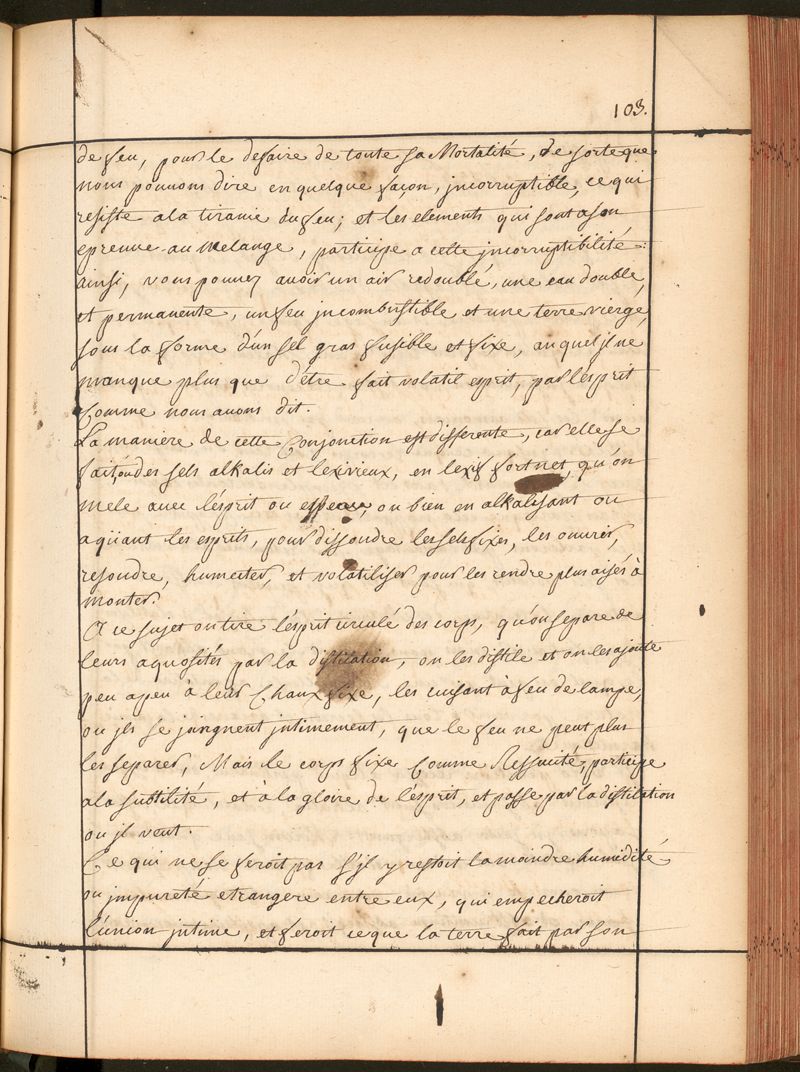 103.
de feu, pour le defaire de toute sa Mortalité, de sorte que
nous pouvons dire en quelque façon, jncorruptible, ce qui
resiste ala tiranie du feu; et les elements qui sont a son
epreuve au melange, participe a cette jncorruptibilité:
ainsi, vous pouvez avoir un air redoublé, une eau double,
et permanente, un feu jncombustible et une terre vierge,
sous la forme d'un sel gras fusible et fixe, auquel jl ne
manque plus que d'être fait volatil esprit, par l'esprit
Comme nous avons dit.
La maniere de cette Conjonction est differente, car elle se
fait, ou des sels alkalis et lexivieux, en lexif fort net, qu'on
mele avec l'esprit ou ou bien en alkalisant ou
aquant les esprits, pour dissoudre les sels fixes, les ouvrir,
resoudre, humecter, et volatiliser pour les rendre plus aisés à
monter.
A ce sujet on tire l'esprit circulé des corps, qu'on separe de
leurs aquosités par la distilation, on les distile et on les ajoute
peu apeu à leur Chaux fixe, les cuisant à feu de lampe,
ou jls se joingnent jntimement, que le feu ne peut plus
les separer, Mais le corps fixe Comme Ressucité, participe
ala subtilité, et à la gloire de l'esprit, et passe par la distilation
ou jl veut.
Ce qui ne se feroit pas s'jl y restoit la moindre humidité
ou jmpureté etrangere entre eux, qui empecheroit
l'union jntime, et feroit ce que la terre fait par son